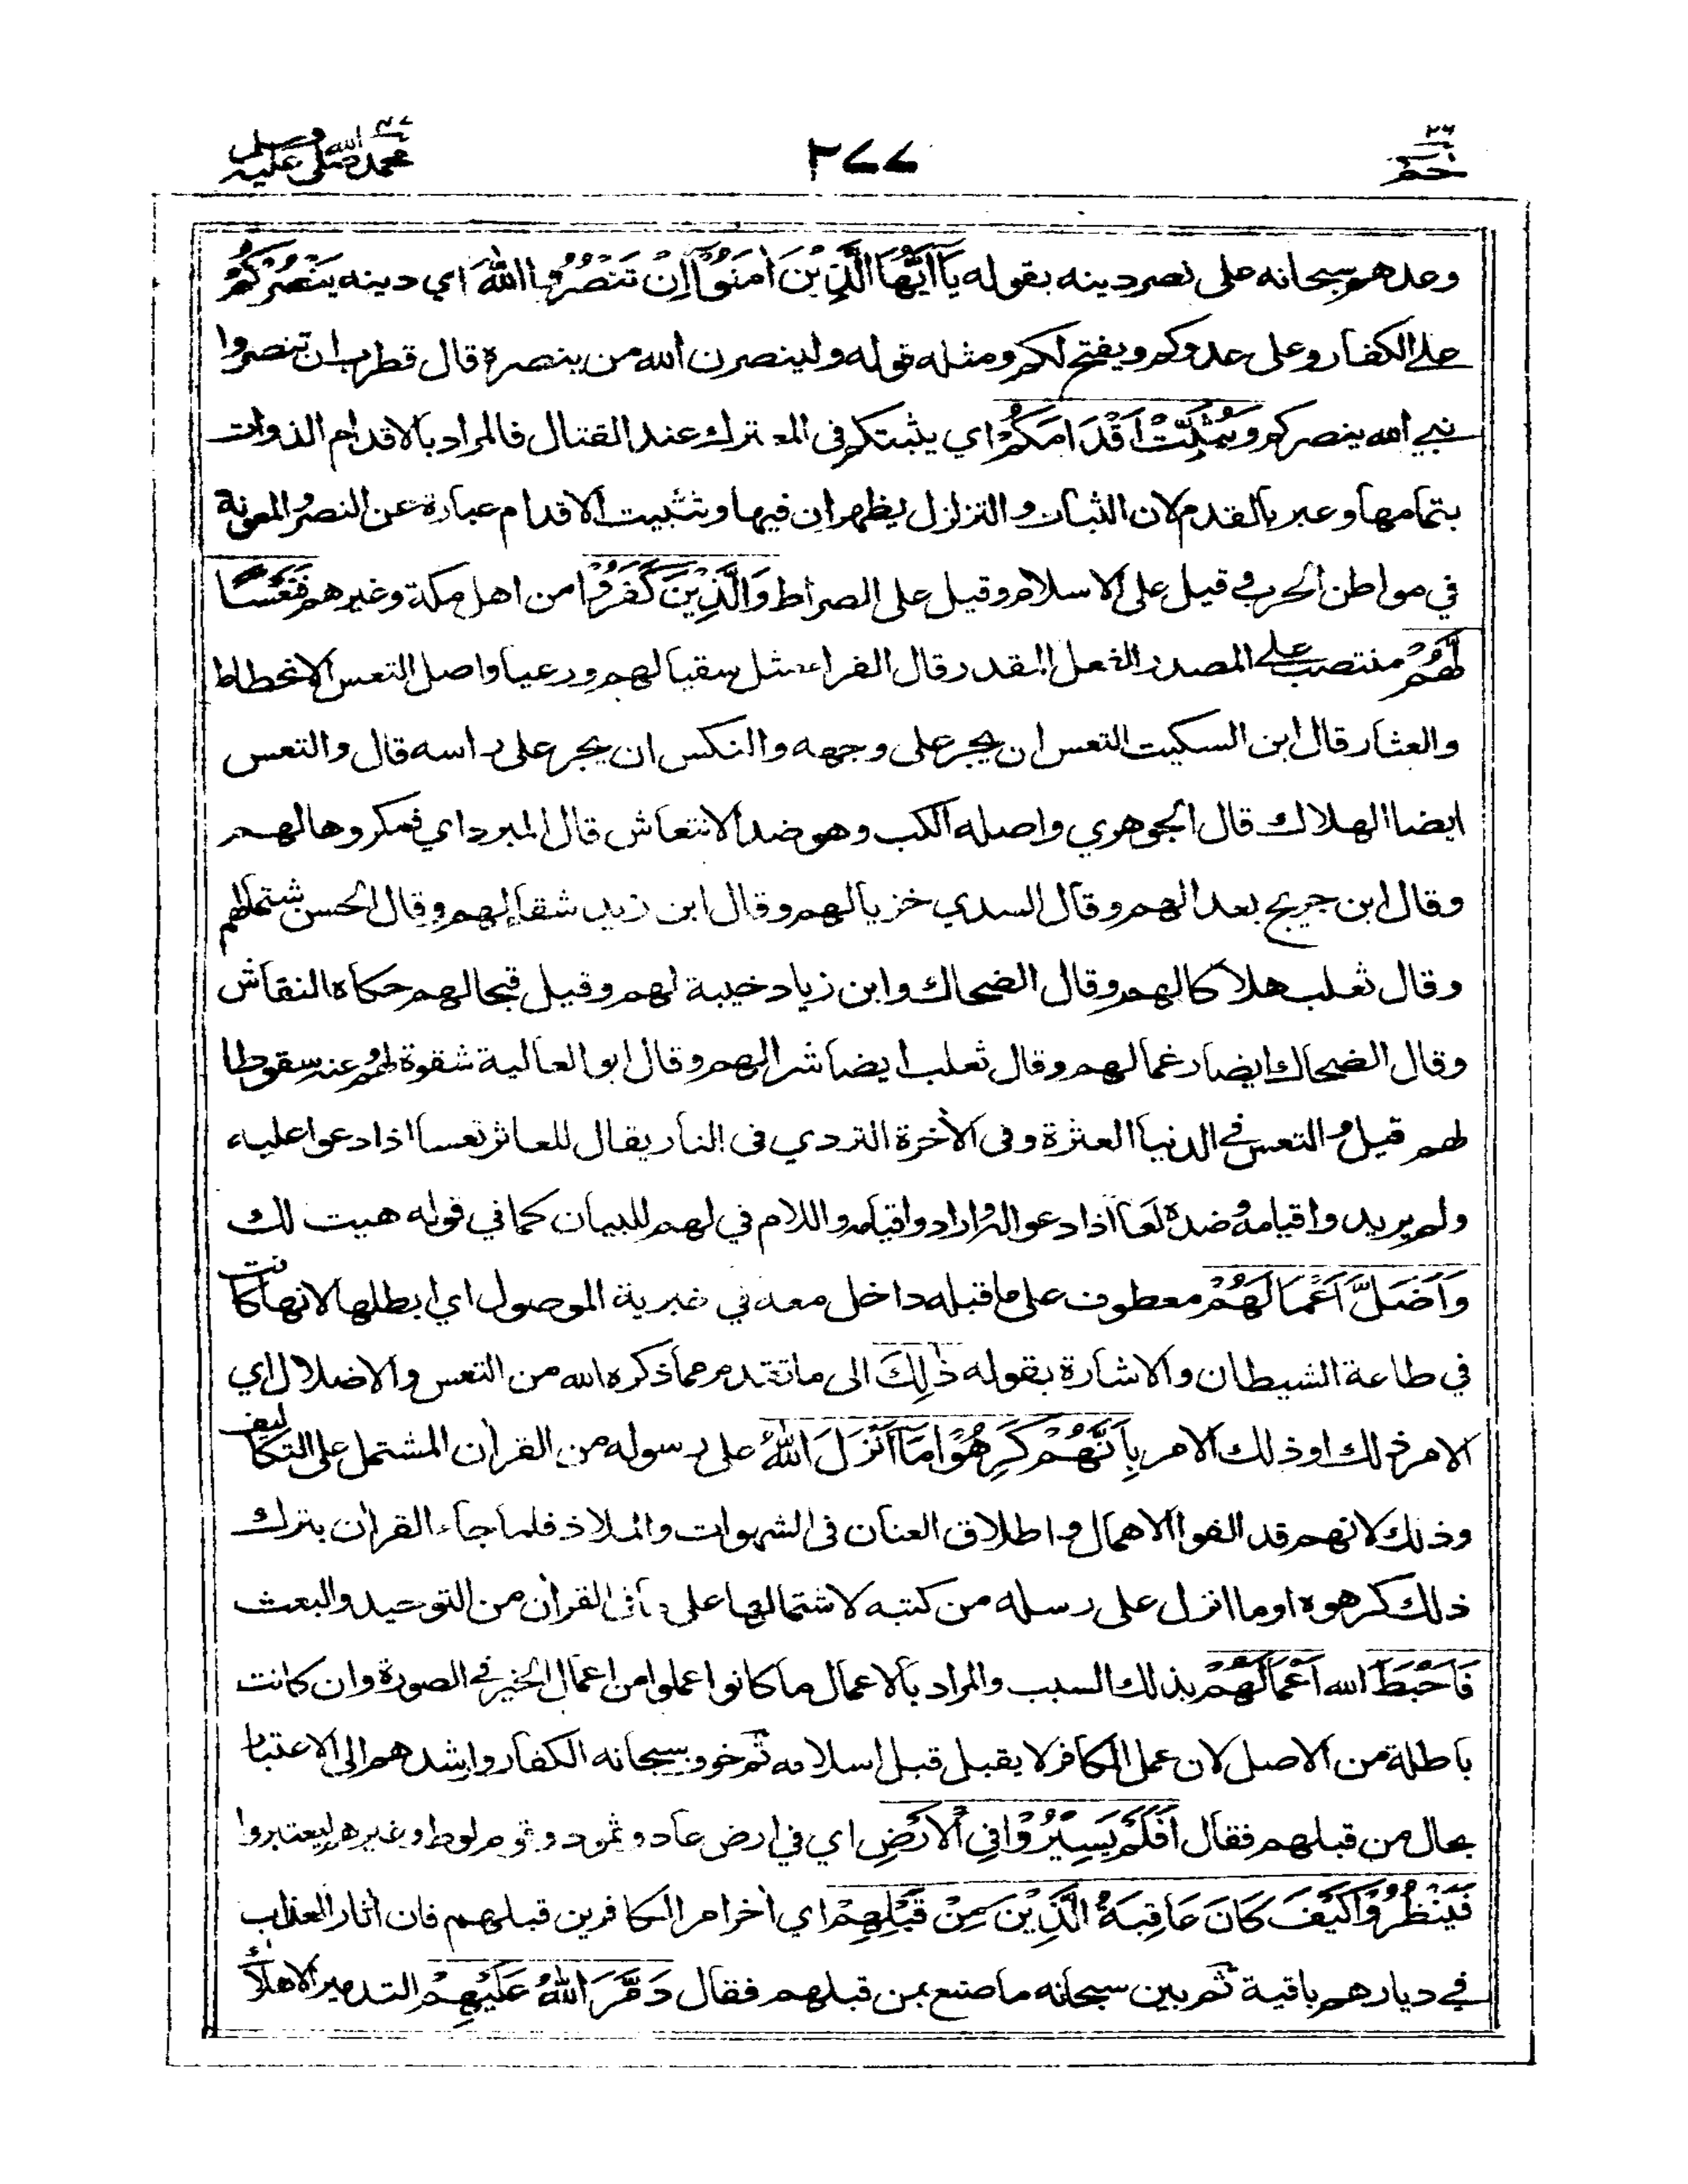 حم ٢٦
٣٧٧
محمد صلى الله عليه وسلم ٤٧
وعدهم سبحانه على نصر دينه بقوله يَا أَيُّهَا الَّذِيْنَ اٰمَنُوْا اِنْ تَنْصُرُوا اللهَ اي دينه يَنْصُرْكُمْ
على الكفار وعلى عدوكم ويفتح لكم ومثله قوله ولينصرن الله من ينصره قال قطرب ان تنصروا
نبي الله ينصركم وَيُثَبِّتْ اَقْدَامَكُمْ اي يثبتكم في المعترك عند القتال فالمراد بالاقدام الذوات
بتمامها وعبر بالقدم لان الثبات والتزلزل يظهران فيها وتثبيت الاقدام عبارة عن النصر والمعونة
في مواطن الحرب وقيل على الاسلام وقيل على الصراط وَالَّذِيْنَ كَفَرُوْا من اهل مكة وغيرهم فَتَعْسًا
لَّهُمْ منتصب على المصدر للفعل المقدر قال الفراء مثل سقيا لهم ورعيا واصل التعس الانحطاط
والعثار قال ابن السكيت التعس ان يجر على وجهه والنكس ان يجر على راسه قال والتعس
ايضا الهلاك قال الجوهري واصله الكب وهو ضد الانتعاش قال المبرد اي فمكروها لهم
وقال ابن جريج بعدا لهم وقال السدي خزيا لهم وقال ابن زيد شقاء لهم وقال الحسن شتما لهم
وقال ثعلب هلاكا لهم وقال الضحاك وابن زياد خيبة لهم وقيل قبحا لهم حكاه النقاش
وقال الضحاك ايضا رغما لهم وقال ثعلب ايضا شرا لهم وقال ابو العالية شقوة لهم وعنه سقوطا
لهم قيل والتعس في الدنيا العثرة وفي الاخرة التردي في النار يقال للعاثر تعسا اذا دعوا عليه
ولم يريدوا قيامه وضده لعا اذا دعوا له وارادوا قيامه واللام في لهم للبيان كما في قوله هيت لك
وَاَضَلَّ اَعْمَالَهُمْ معطوف على ما قبله داخل معه في خبرية الموصول اي ابطلها لانها كانت
في طاعة الشيطان والاشارة بقوله ذٰلِكَ الى ما تقدم مما ذكره الله من التعس والاضلال اي
الامر ذلك او ذلك الامر بِاَنَّهُمْ كَرِهُوْا مَا اَنْزَلَ اللهُ على رسوله من القران المشتمل على التكاليف
وذلك لانهم قد الفوا الاهمال واطلاق العنان في الشهوات والملاذ فلما جاء القران بترك
ذلك كرهوه او ما انزل على رسله من كتبه لاشتمالها على ما في القران من التوحيد والبعث
فَاَحْبَطَ الله اَعْمَالَهُمْ بذلك السبب والمراد بالاعمال ما كانوا عملوا من اعمال الخير في الصورة وان كانت
باطلة من الاصل لان عمل الكافر لا يقبل قبل اسلامه ثم خوف سبحانه الكفار وارشدهم الى الاعتبار
بحال من قبلهم فقال اَفَلَمْ يَسِيْرُوْا فِي الْاَرْضِ اي في ارض عاد وثمود وقوم لوط وغيرهم ليعتبروا
فَيَنْظُرُوْا كَيْفَ كَانَ عَاقِبَةُ الَّذِيْنَ مِنْ قَبْلِهِمْ اي أخر امر الكافرين قبلهم فان اثار العذاب
في ديارهم باقية ثم بين سبحانه ما صنع بمن قبلهم فقال دَمَّرَ اللهُ عَلَيْهِمْ التدمير الاهلاك